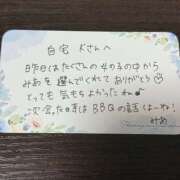 自宅 Kさんへ
昨日はたくさんの女の子の中から
みあを選んでくれてありがとう
とっても気もちよかったね♪
次会った時はBBQの話しよーね!
みあ